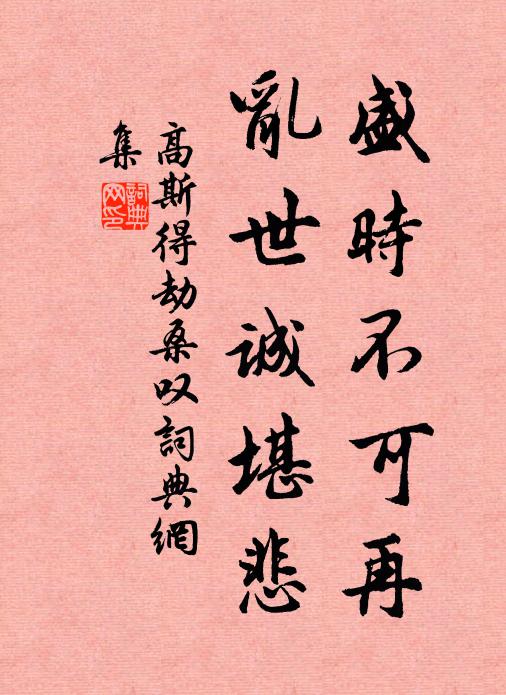 盛時不可再
亂世誠堪悲
高斯得劫桑叹詞典網
集
詞典
网印